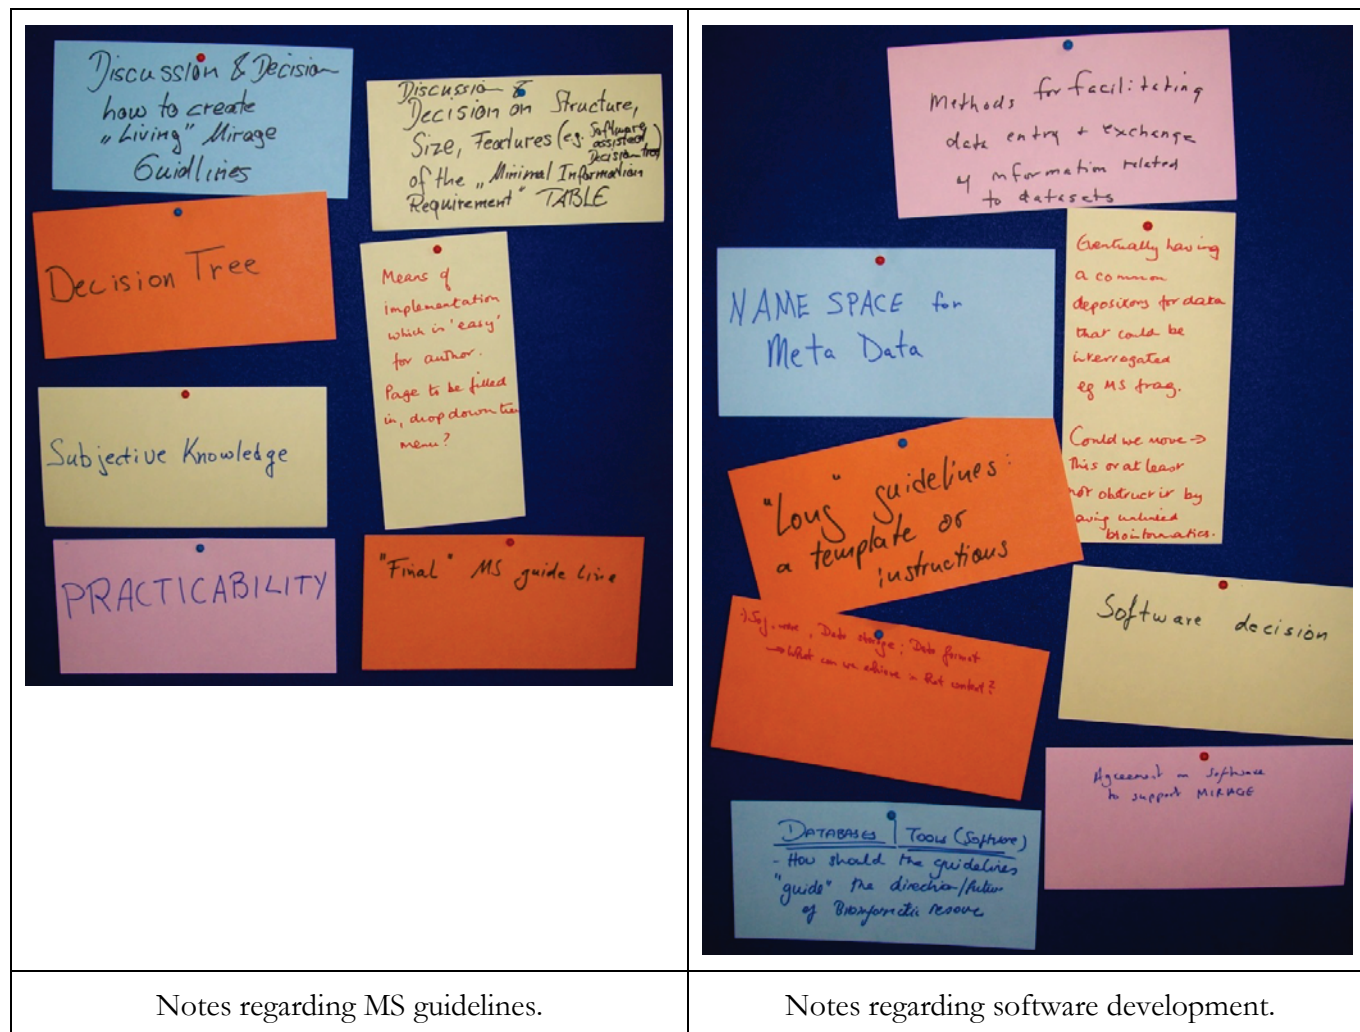 Discussion & Decision
how to create
„Living" Mirage
Guidlines
Discussion &
Decision on Structure,
Size, Features (eg. Software
assisted
Decision Tree)
of the „Minimal Information
Requirement" TABLE
Decision Tree
Means of
implementation
which is 'easy'
for author.
Page to be filled
in, drop down tree
menu?
Subjective Knowledge
PRACTICABILITY
"Final" MS guide line
Methods for facilitating
data entry + exchange
of information related
to datasets
NAME SPACE for
Meta Data
Eventually having
a common
depository for data
that could be
interrogated
eg MS frag.
Could we move →
this or at least
not obstruct it by
having unlinked
bioinformatics.
"Long" guidelines:
a template or
instructions
Data storage; Data format
→ What can we achieve in that context?
Software decision
Agreement on software
to support MIRAGE
DATABASES | TOOLS (Software)
- How should the guidelines
"guide" the direction/future
of Bioinformatic
Notes regarding MS guidelines.
Notes regarding software development.